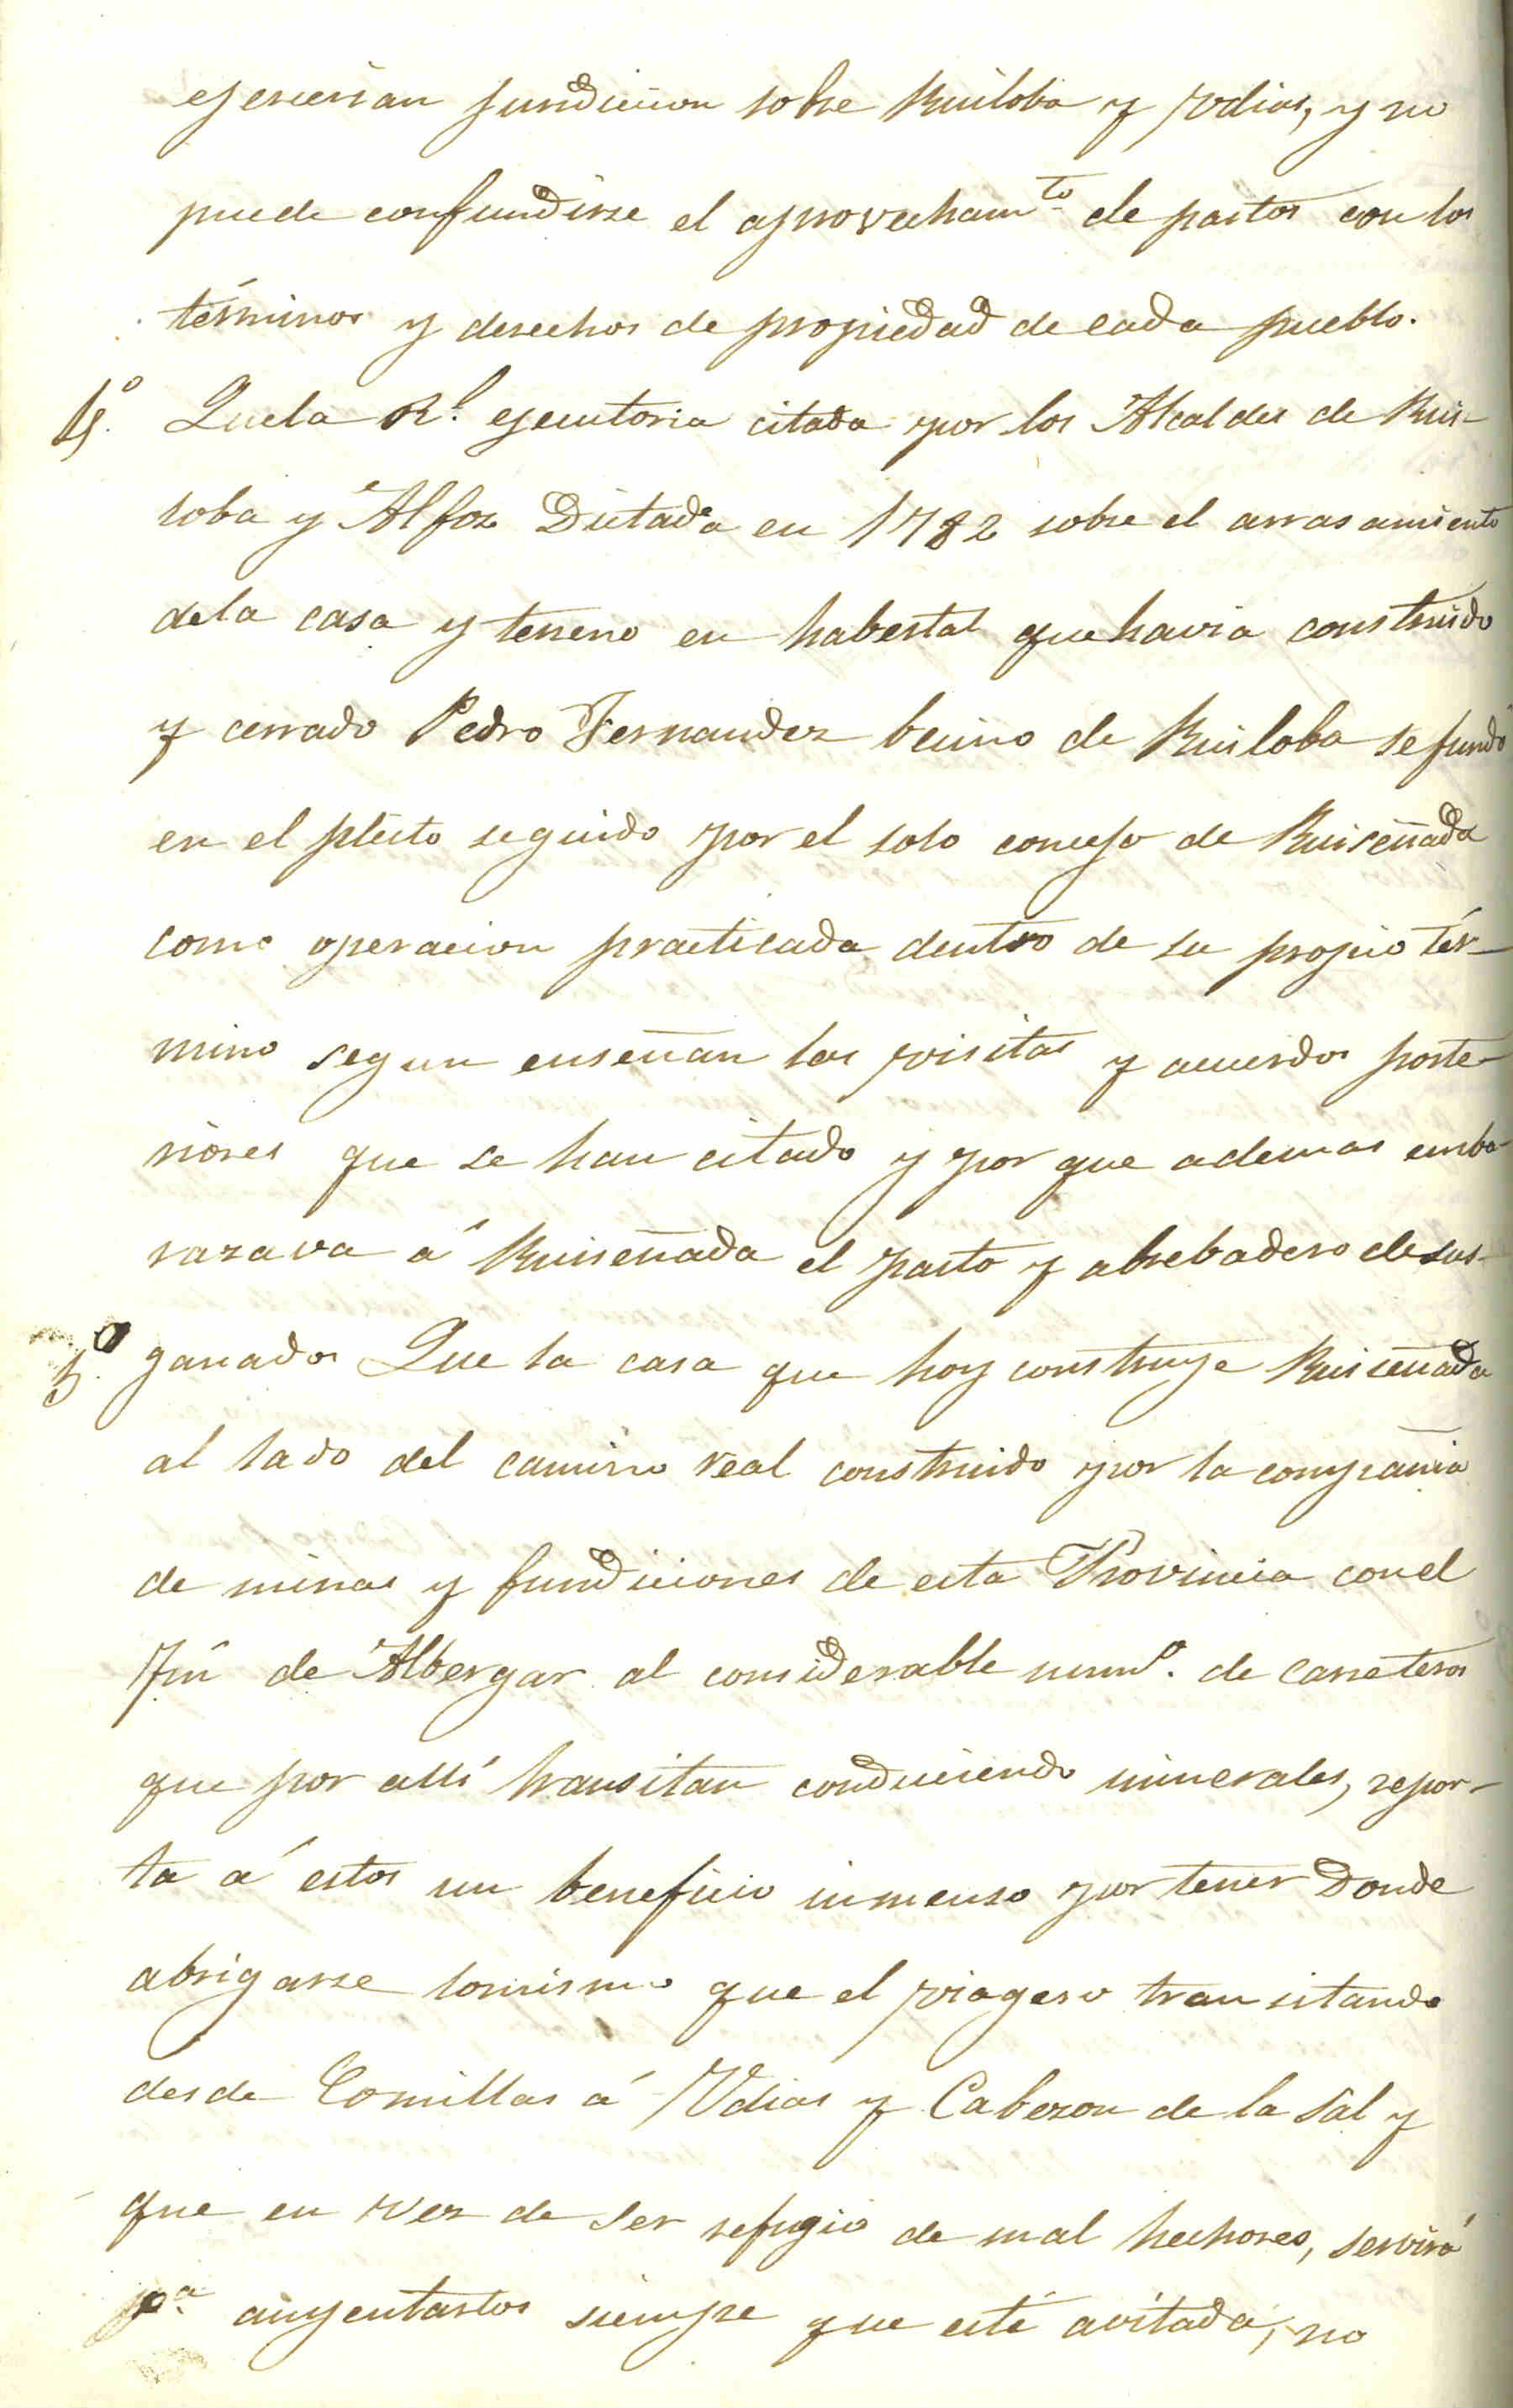 egercerian jurisdiccion sobre Ruiloba y Vdias, y no
puede confundirse el aprovecham.to de pastos con los
términos y derechos de propiedad de cada pueblo.
4º. Quela R.l egecutoria citada por los Alcaldes de Rui-
loba y Alfoz Dictada en 1782 sobre el arrasamiento
dela casa y terreno en habertal quehavia construido
y cerrado Pedro Fernandez becino de Ruiloba se fundó
en el pleito seguido por el solo concejo de Ruiseñada
como operacion practicada dentro de su propio tér-
mino segun enseñan las visitas y acuerdos poste-
riores que se han citado y por que ademas emba-
razava á Ruiseñada el pasto y abrebadero de sus
5º. ganados Que la casa que hoy construye Ruiseñada
al lado del camino real construido por la compañia
de minas y fundiciones de esta Provincia con el
fin de Albergar al considerable num.º de carreteros
que por allí transitan conduciendo minerales, repor-
ta á estos un beneficio inmenso por tener Donde
abrigarse lomismo que el viagero transitando
desde Comillas á Vdias y Cabezon de la Sal y
que en vez de ser refugio de mal hechores, servirá
p.a auyentarlos siempre que esté avitada, no